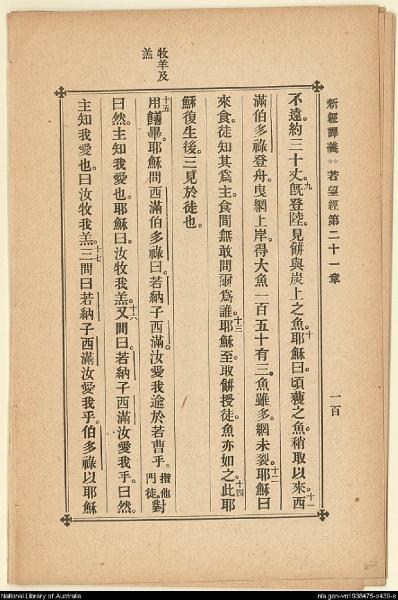 新經譯義 ○○ 若望經第二十一章 一百
不遠。約二十丈。九既登陸。見餅與炭上之魚。十耶穌曰。頃獲之魚。稍取以來。十一西
滿伯多祿登舟。曳網上岸。得大魚一百五十有三。魚雖多。網未裂。十二耶穌曰
來食。徒知其為主。食間無敢問爾為誰。十三耶穌至。取餅授徒。魚亦如之。十四此耶
穌復生後。三見於徒也。
牧羊及羔
十五用饍畢。耶穌問西滿伯多祿曰。若納子西滿。汝愛我逾於若曹乎。指他門徒。對
曰然。主知我愛也。耶穌曰。汝牧我羔。十六又問曰。若納子西滿。汝愛我乎。曰然。
主知我愛也。曰汝牧我羔。十七三問曰。若納子西滿。汝愛我乎。伯多祿以耶穌
National Library of Australia
nla.gen-vn1938475-s439-e